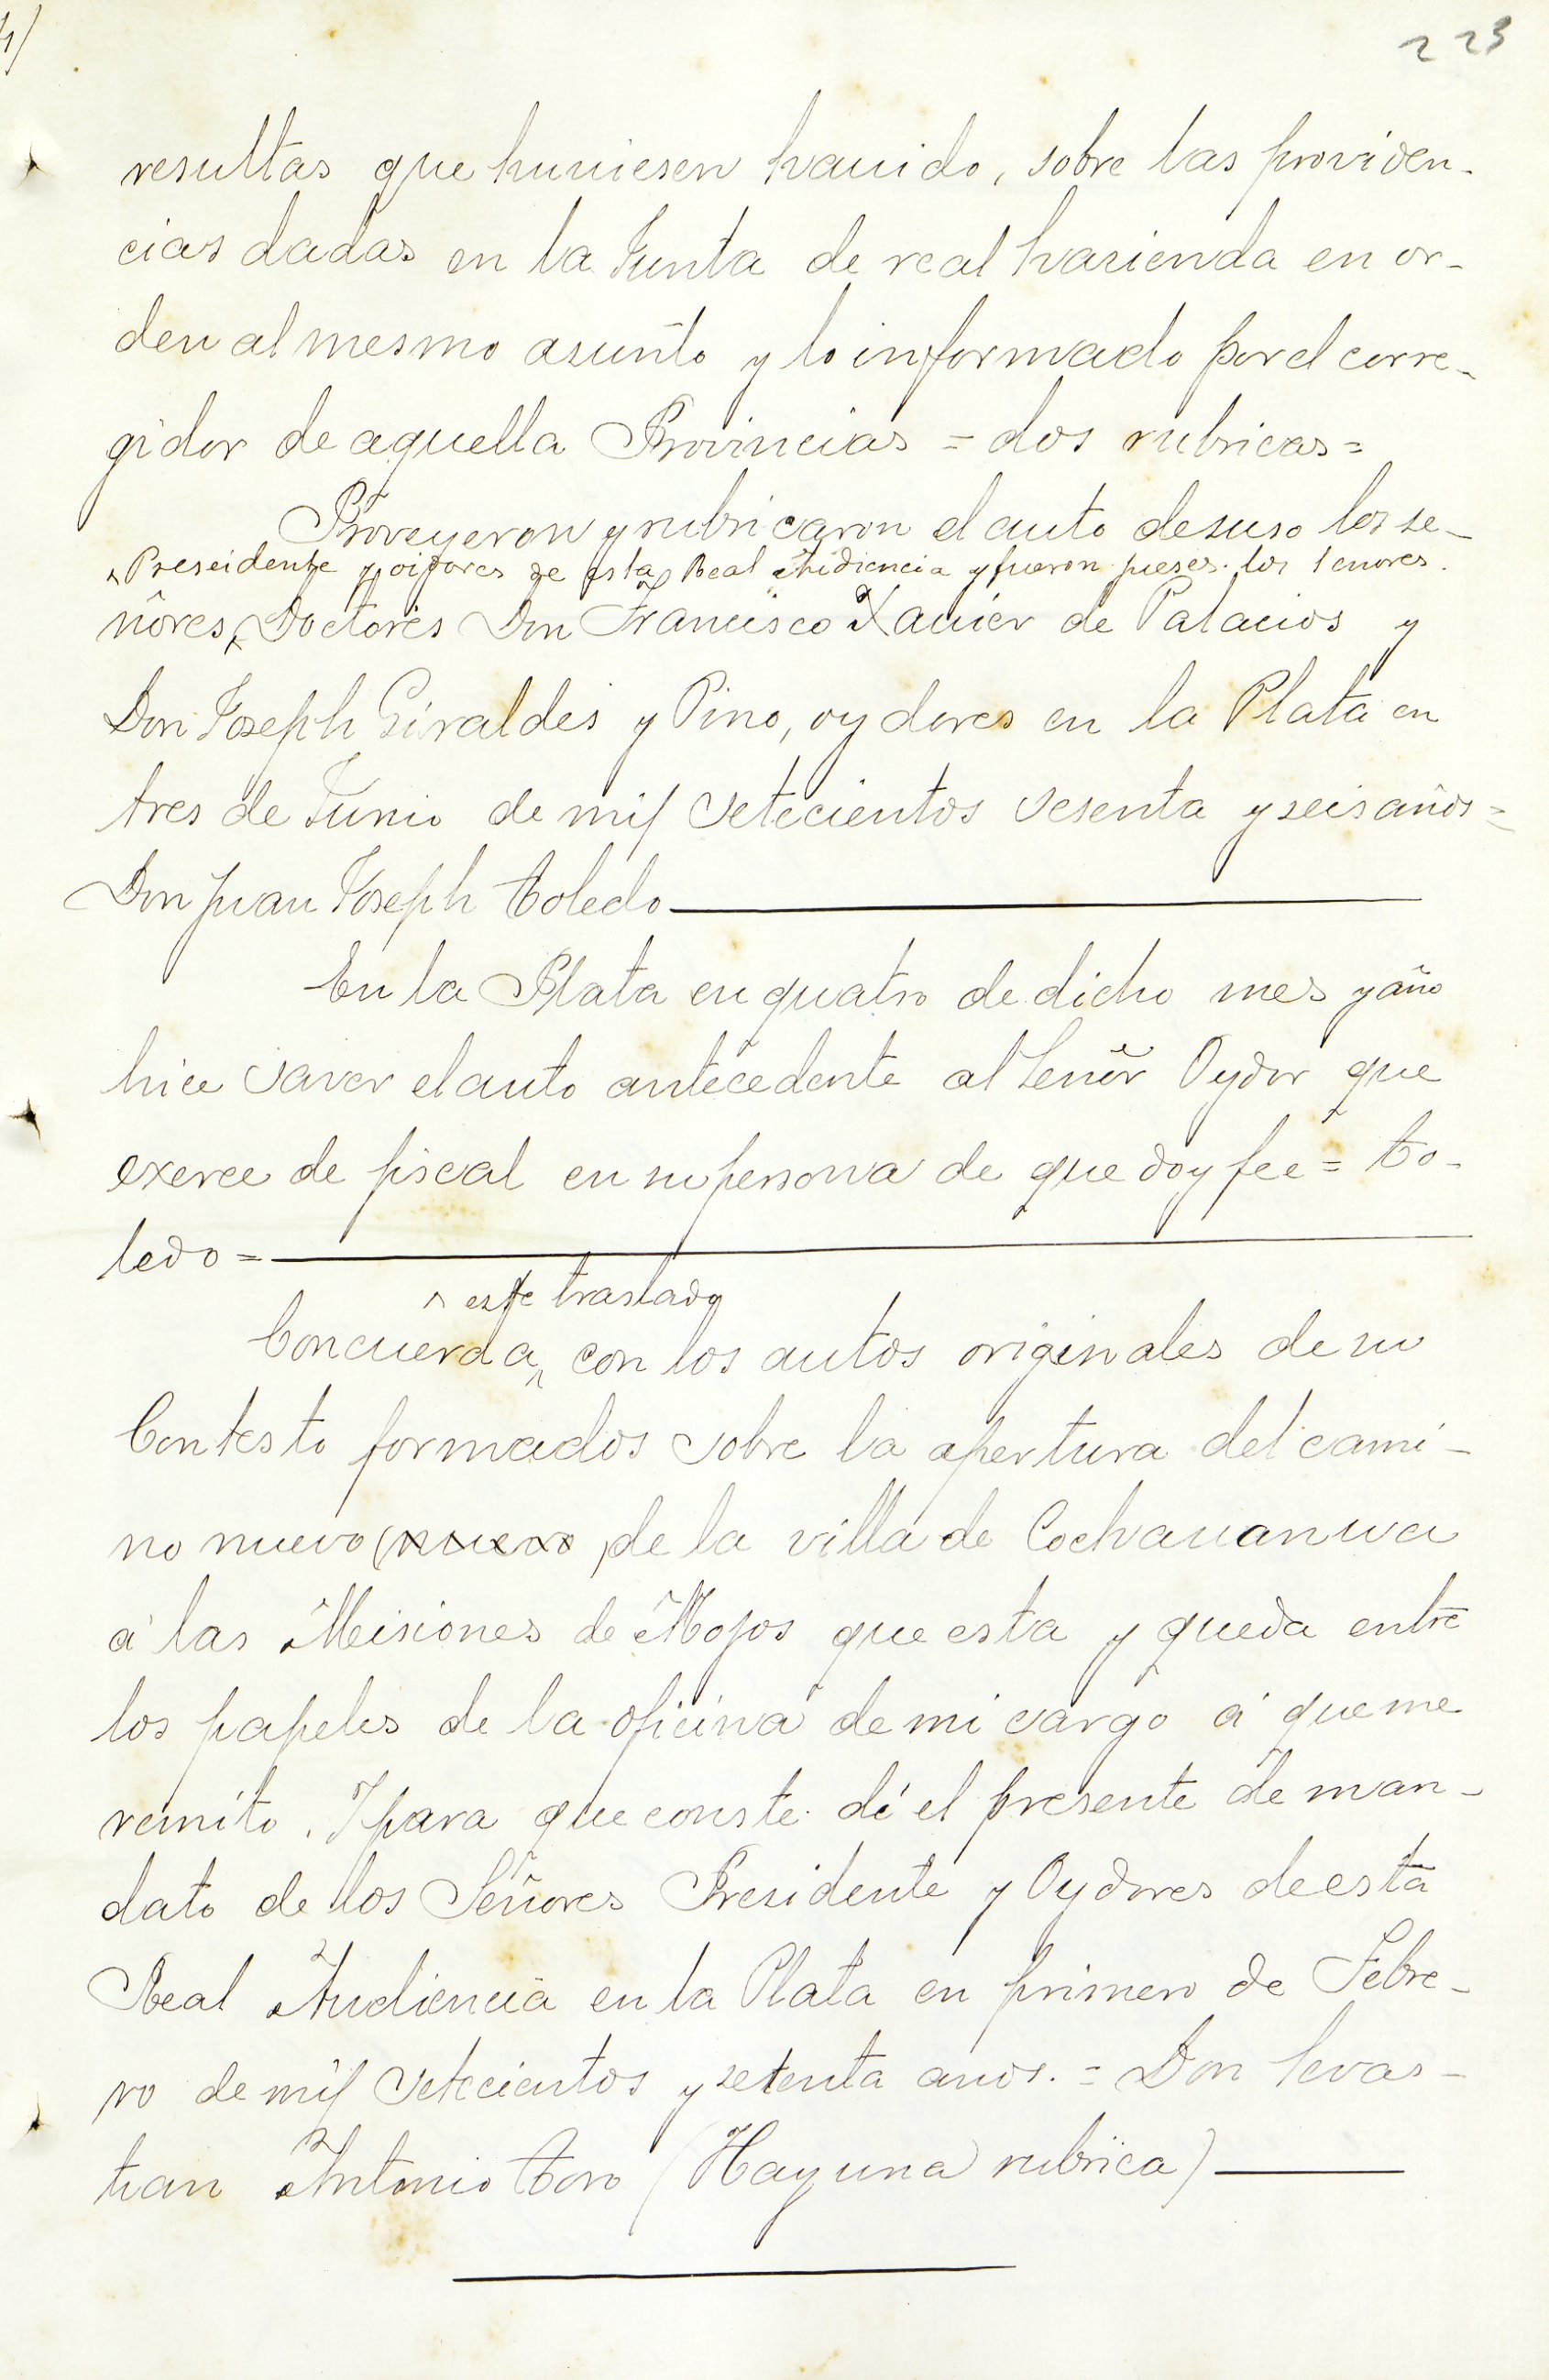 223
resultas que huuiesen hauido, sobre las providen-
cias dadas en la Junta de real hazienda en or-
den al mesmo asunto y lo informado por el corre-
gidor de aquella Provincias = dos rubricas =
Proveyeron y rubricaron el auto desuso los se-
^ Preseidente y oidores de esta Real Audiencia y fueron jueses los señores.
ñores ^ Doctores Don Francisco Xauier de Palacios y
Don Joseph Giraldes y Pino, oydores en la Plata en
tres de Junio de mil setecientos sesenta y seis años =
Don Juan Joseph Toledo
En la Plata en quatro de dicho mes y año
hice saver el auto antecedente al Señor Oydor que
exerce de fiscal en su persona de que doy fee = To-
ledo =
^ este traslado
Concuerda ^ con los autos originales de su
Contesto formados sobre la apertura del cami-
no nuevo (nuevo) de la villa de Cochauanva
á las Misiones de Mojos que esta y queda entre
los papeles de la oficina de mi cargo á que me
remito. Y para que conste dí el presente de man-
dato de los Señores Presidente y Oydores de esta
Real Audiencia en la Plata en primero de Febre-
ro de mil setecientos y setenta anos. = Don Sevas-
tian Antonio Toro (Hay una rubrica)